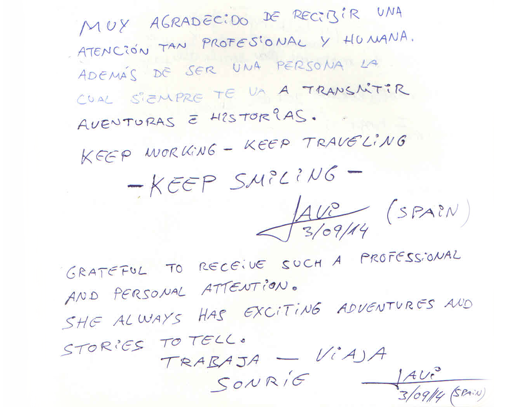 MUY AGRADECIDO DE RECIBIR UNA
ATENCIÓN TAN PROFESIONAL Y HUMANA.
ADEMÁS DE SER UNA PERSONA LA
CUAL SIEMPRE TE VA A TRANSMITIR
AVENTURAS E HISTORIAS.
KEEP WORKING - KEEP TRAVELING
- KEEP SMILING -
JAVI (SPAIN)
3/09/14
GRATEFUL TO RECEIVE SUCH A PROFESSIONAL
AND PERSONAL ATTENTION.
SHE ALWAYS HAS EXCITING ADVENTURES AND
STORIES TO TELL.
TRABAJA - VIAJA
SONRIE
JAVI
3/09/14 (SPAIN)